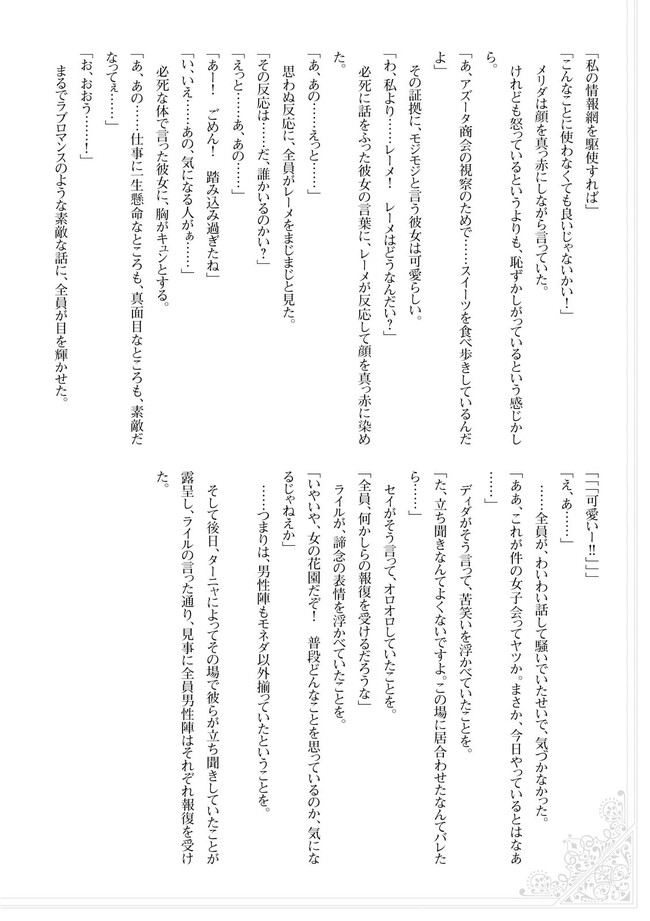 「私の情報網を駆使すれば」
「こんなことに使わなくても良いじゃないかい！」
メリダは顔を真っ赤にしながら言っていた。
けれども怒っているというよりも、恥ずかしがっているという感じかし
ら。
「あ、アズータ商会の視察のためで……スイーツを食べ歩きしているんだ
よ」
その証拠に、モジモジと言う彼女は可愛らしい。
「わ、私より……レーメ！　レーメはどうなんだい？」
必死に話をふった彼女の言葉に、レーメが反応して顔を真っ赤に染め
た。
「あ、あの……えっと……」
思わぬ反応に、全員がレーメをまじまじと見た。
「その反応は……だ、誰かいるのかい？」
「えっと……あ、あの……」
「あー！　ごめん！　踏み込み過ぎたね」
「い、いえ……あの、気になる人がぁ……」
必死な体で言った彼女に、胸がキュンとする。
「あ、あの……仕事に一生懸命なところも、真面目なところも、素敵だ
なってぇ……」
「お、おおう……！」
まるでラブロマンスのような素敵な話に、全員が目を輝かせた。
「「「可愛いー!!」」」
「え、あ……」
……全員が、わいわい話して騒いでいたせいで、気づかなかった。
「ああ、これが件の女子会ってヤツか。まさか、今日やっているとはなあ
……」
ディダがそう言って、苦笑いを浮かべていたことを。
「た、立ち聞きなんてよくないですよ。この場に居合わせたなんてバレた
ら……」
セイがそう言って、オロオロしていたことを。
「全員、何かしらの報復を受けるだろうな」
ライルが、諦念の表情を浮かべていたことを。
「いやいや、女の花園だぞ！　普段どんなことを思っているのか、気にな
るじゃねえか」
……つまりは、男性陣もモネダ以外揃っていたということを。
そして後日、ターニャによってその場で彼らが立ち聞きしていたことが
露呈し、ライルの言った通り、見事に全員男性陣はそれぞれ報復を受け
た。